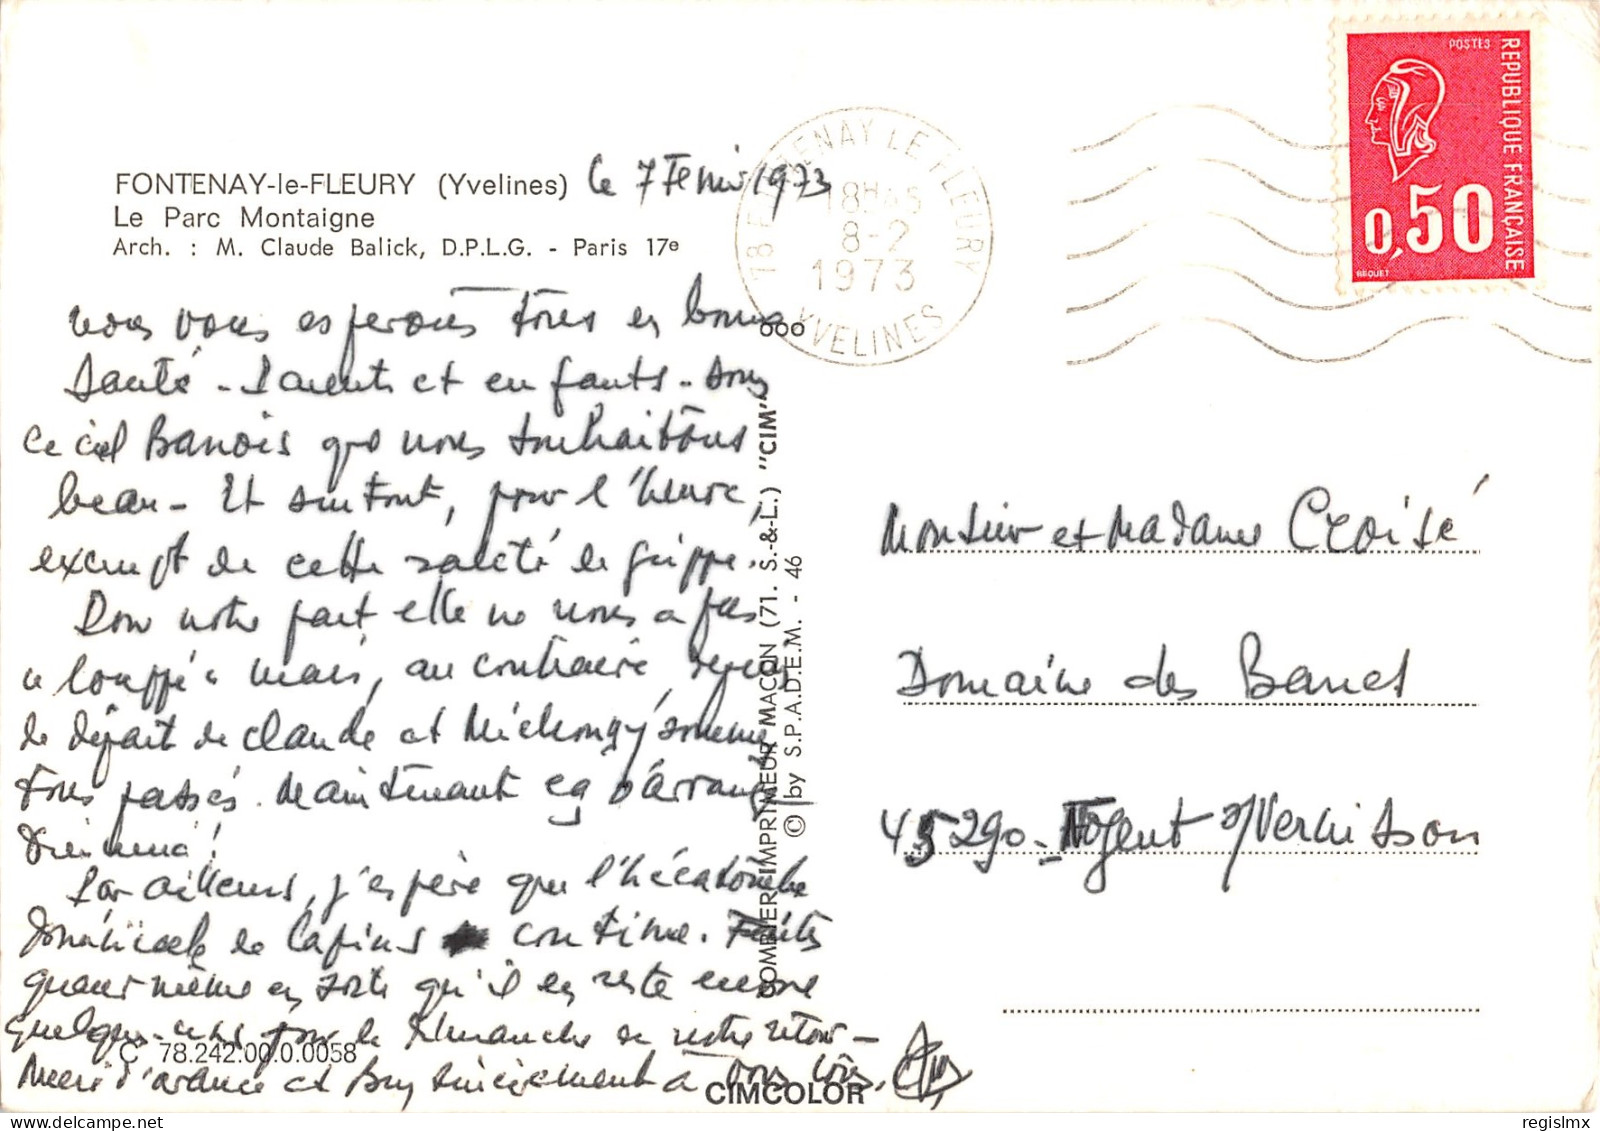 FONTENAY-le-FLEURY (Yvelines) le 7 Février 1973
Le Parc Montaigne
Arch. : M. Claude Balick, D.P.L.G. - Paris 17e
nous vous espérons tous en bonne
santé - Parents et enfants - sous
ce ciel que nous souhaitons
beau - Et surtout, pour l'heure,
exempt de cette saleté de grippe.
Pour notre part elle ne nous a pas
"louppé" mais, au contraire, depuis
le départ de Claude et
tous passés. Maintenant
Dieu merci !
Par ailleurs, j'espère que l'hécatombe
dominicale de lapins continue. Faites
quand même en sorte qu'il en reste encore
quelques-uns pour le Dimanche de votre retour -
Merci d'avance et bien sincèrement à vous tous.
C 78.242.00.0.0058
CIMCOLOR
COMBIER IMPRIMEUR MACON (71. S.-&-L.) "CIM"
© by S.P.A.D.E.M. - 46
78 FONTENAY LE FLEURY
18H45
8-2
1973
YVELINES
POSTES
REPUBLIQUE FRANÇAISE
0,50
BEQUET
Monsieur et Madame Croisé
Domaine des
45290 - Nogent s/Vernisson
regislmx